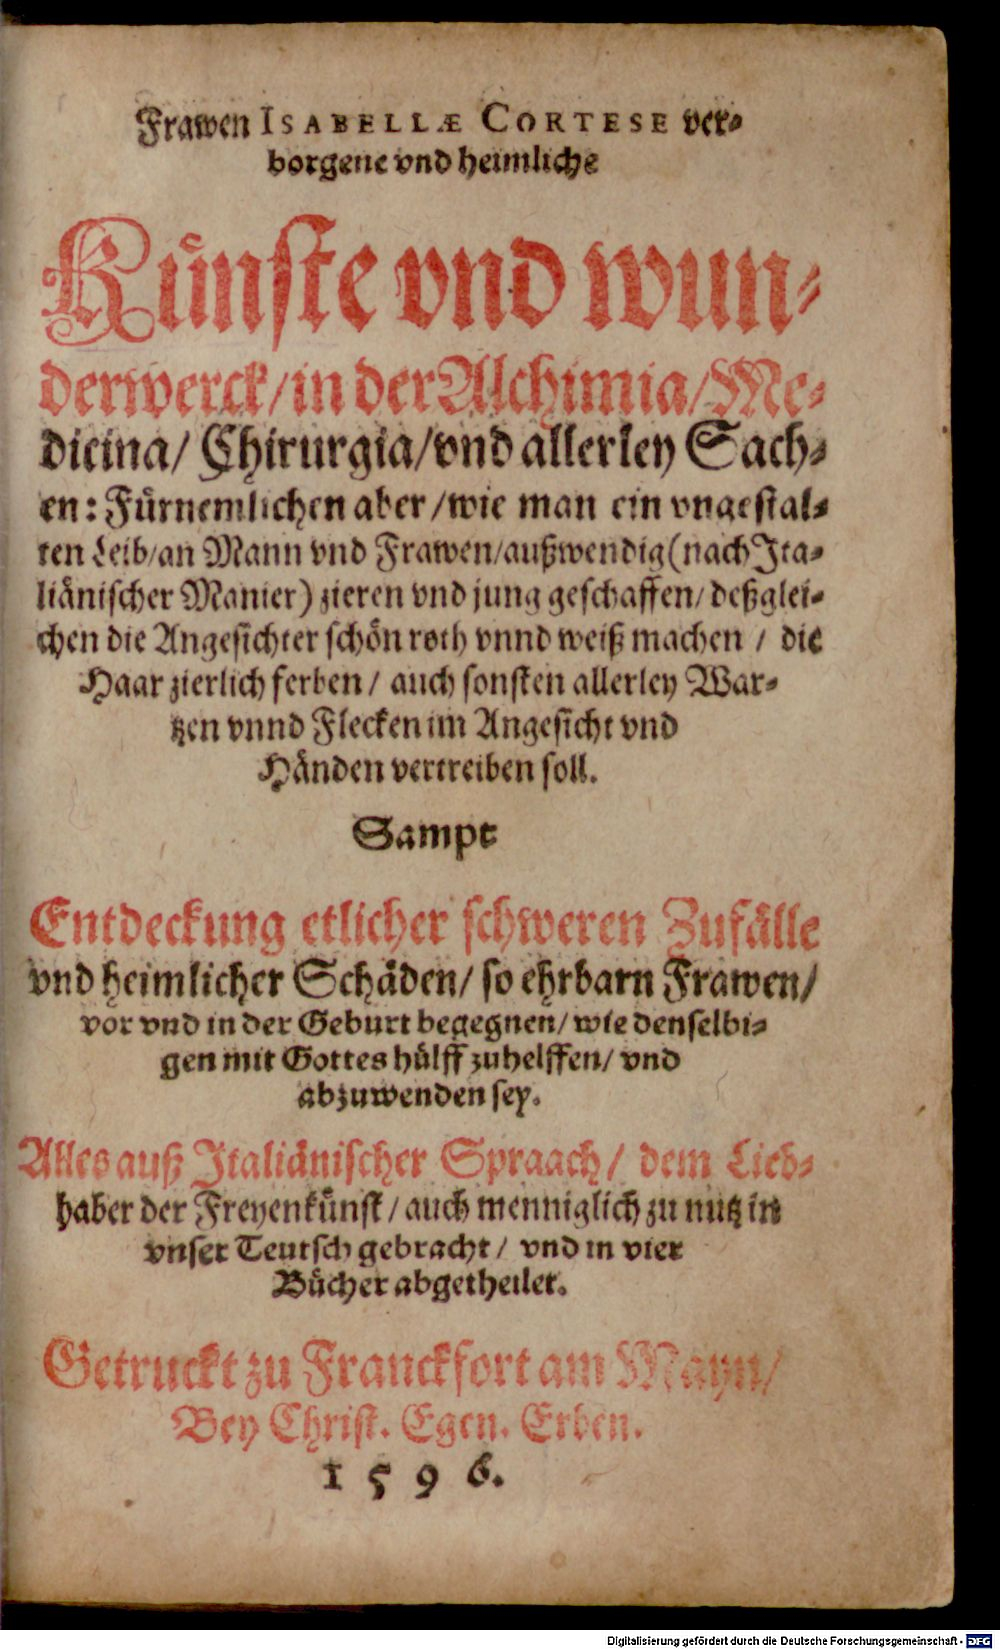 Frawen ISABELLÆ CORTESE ver⸗
borgene vnd heimliche
Kuͤnste vnd wun⸗
derwerck/ in der Alchimia/ Me⸗
dicina/ Chirurgia/ vnd allerley Sach⸗
en: Fuͤrnemlichen aber/ wie man ein vngestal⸗
ten Leib/ an Mann vnd Frawen/ außwendig (nach Ita⸗
liänischer Manier) zieren vnd jung geschaffen/ deßglei⸗
chen die Angesichter schön roth vnnd weiß machen / die
Haar zierlich ferben / auch sonsten allerley War⸗
tzen vnnd Flecken im Angesicht vnd
Händen vertreiben soll.
Sampt
Entdeckung etlicher schweren Zufälle
vnd heimlicher Schäden/ so ehrbarn Frawen/
vor vnd in der Geburt begegnen/ wie denselbi⸗
gen mit Gottes huͤlff zuhelffen/ vnd
abzuwenden sey.
Alles auß Italiänischer Spraach/ dem Lieb⸗
haber der Freyenkuͤnst / auch menniglich zu nutz in
vnser Teutsch gebracht / vnd in vier
Buͤcher abgetheilet.
Getruckt zu Franckfort am Mayn/
Bey Christ. Egen. Erben.
1596.
Digitalisierung gefördert durch die Deutsche Forschungsgemeinschaft - DFG